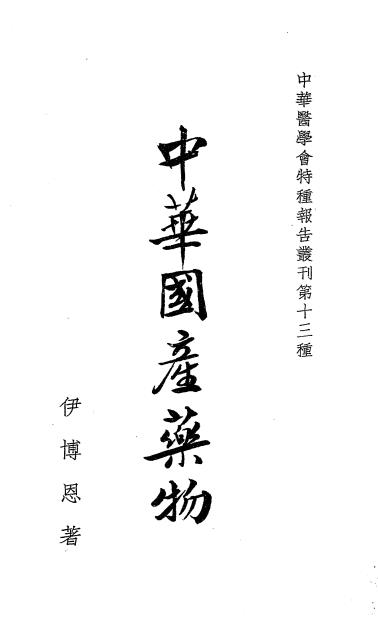 中華醫學會特種報告叢刊第十三種
中華國產藥物
伊博恩著